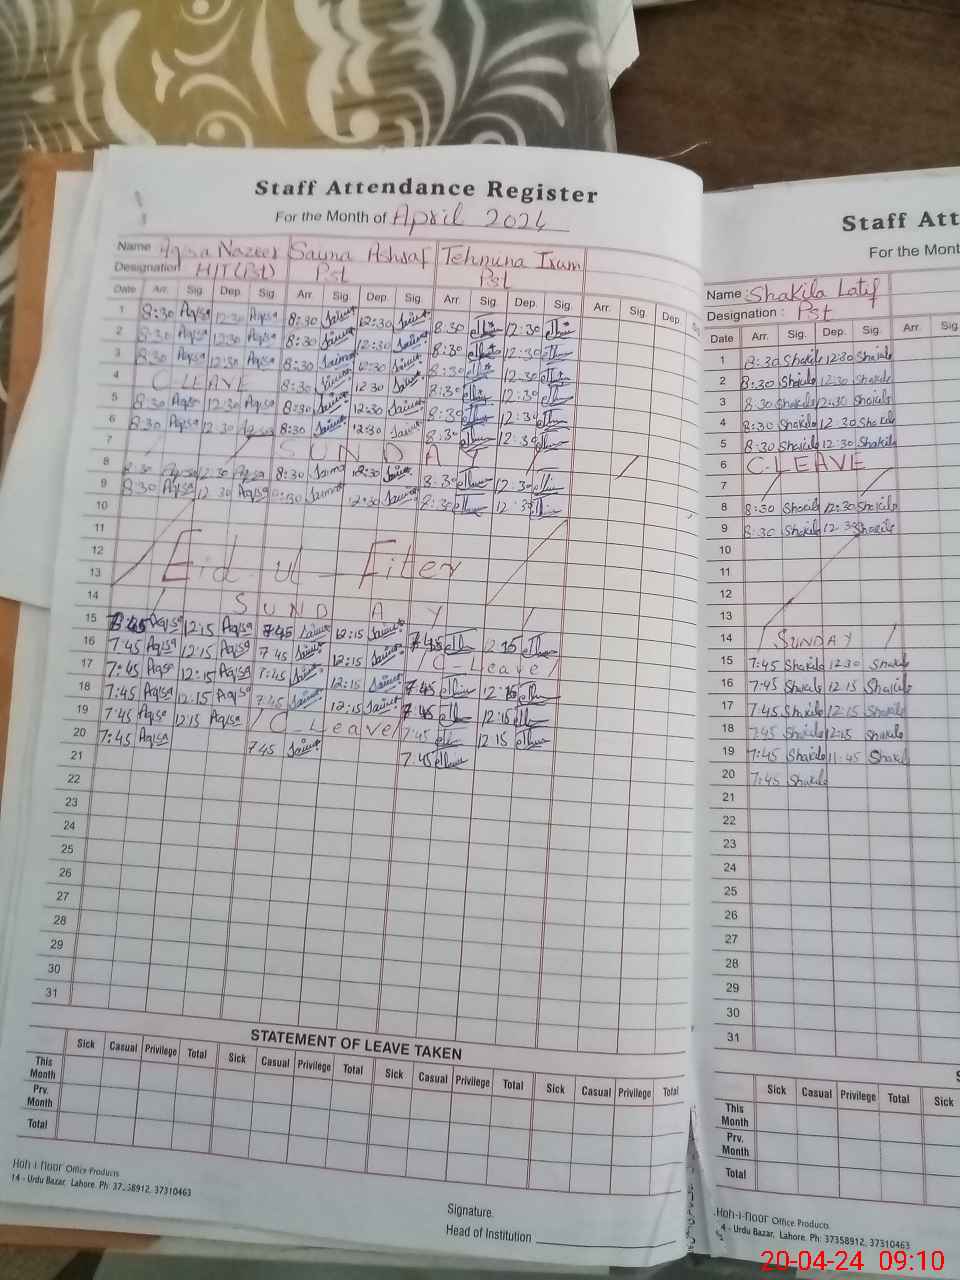 Staff Attendance Register
For the Month of April 2024
Name Aqsa Nazeer Saima Ashraf Tehmina Irum
Designation HT(Pst) Pst Pst
Date Arr. Sig. Dep. Sig. Arr. Sig. Dep. Sig. Arr. Sig. Dep. Sig. Arr. Sig. Dep. Sig.
1 8:30 Aqsa 12:30 Aqsa 8:30 Saima 12:30 Saima 8:30 12:30
2 8:30 Aqsa 12:30 Aqsa 8:30 Saima 12:30 Saima 8:30 12:30
3 8:30 Aqsa 12:30 Aqsa 8:30 Saima 12:30 Saima 8:30 12:30
4 C-LEAVE 8:30 Saima 12:30 Saima 8:30 12:30
5 8:30 Aqsa 12:30 Aqsa 8:30 Saima 12:30 Saima 8:30 12:30
6 8:30 Aqsa 12:30 Aqsa 8:30 Saima 12:30 Saima 8:30 12:30
7 SUNDAY
8 8:30 Aqsa 12:30 Aqsa 8:30 Saima 12:30 Saima 8:30 12:30
9 8:30 Aqsa 12:30 Aqsa 8:30 Saima 12:30 Saima 8:30 12:30
10
11
12 Eid-ul-Fiter
13
14 SUNDAY
15 7:45 Aqsa 12:15 Aqsa 7:45 Saima 12:15 Saima 7:45 12:15
16 7:45 Aqsa 12:15 Aqsa 7:45 Saima 12:15 Saima C-Leave
17 7:45 Aqsa 12:15 Aqsa 7:45 Saima 12:15 Saima 7:45 12:15
18 7:45 Aqsa 12:15 Aqsa 7:45 Saima 12:15 Saima 7:45 12:15
19 7:45 Aqsa 12:15 Aqsa C-Leave 7:45 12:15
20 7:45 Aqsa 7:45 Saima 7:45
21
22
23
24
25
26
27
28
29
30
31
STATEMENT OF LEAVE TAKEN
Sick Casual Privilege Total Sick Casual Privilege Total Sick Casual Privilege Total Sick Casual Privilege Total
This Month
Prv. Month
Total
Koh-i-noor Office Products
14 - Urdu Bazar, Lahore. Ph: 37358912, 37310463
Signature.
Head of Institution
Staff Att
For the Mont
Name : Shakila Latif
Designation : Pst
Date Arr. Sig. Dep. Sig. Arr. Sig.
1 8:30 Shakila 12:30 Shakila
2 8:30 Shakila 12:30 Shakila
3 8:30 Shakila 12:30 Shakila
4 8:30 Shakila 12:30 Shakila
5 8:30 Shakila 12:30 Shakila
6 C-LEAVE
7
8 8:30 Shakila 12:30 Shakila
9 8:30 Shakila 12:30 Shakila
10
11
12
13
14 SUNDAY
15 7:45 Shakila 12:30 Shakila
16 7:45 Shakila 12:15 Shakila
17 7:45 Shakila 12:15 Shakila
18 7:45 Shakila 12:15 Shakila
19 7:45 Shakila 11:45 Shakila
20 7:45 Shakila
21
22
23
24
25
26
27
28
29
30
31
S
Sick Casual Privilege Total Sick
This Month
Prv. Month
Total
Koh-i-noor Office Products
4 - Urdu Bazar, Lahore. Ph: 37358912, 37310463
20-04-24 09:10